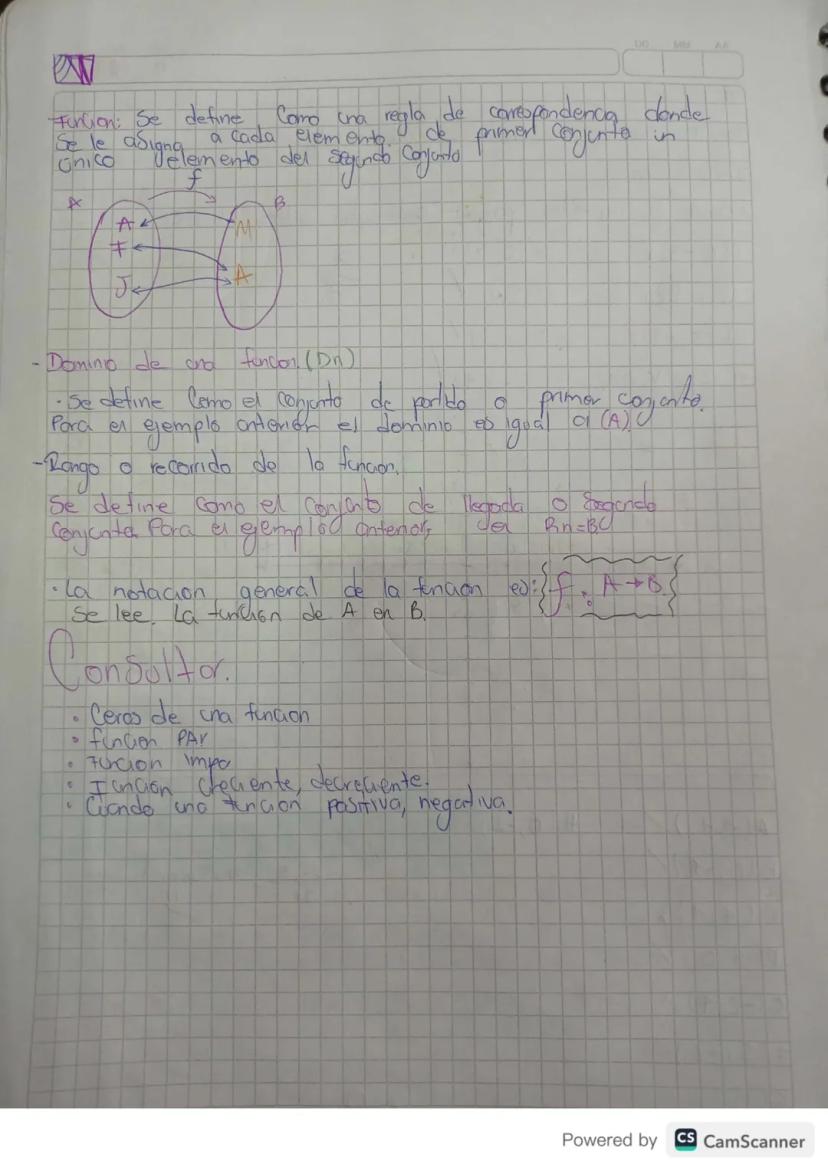 DD MM AA
Función: Se define Como una regla de correspondencia donde
Se le asigna a cada elemento de primer Conjunto un
único elemento del segundo Conjunto
f
A B
A M
F
A
J
- Dominio de una funcion (Dn)
· Se define Como el conjunto de partida o primer conjunto.
Para el ejemplo anterior el dominio es igual a (A)
- Rango o recorrido de la funcion.
Se define como el Conjunto de llegada o Segundo
Conjunto Para el ejemplo anterior, Rn=B
· La notacion general de la funcion es: f: A→B
Se lee. La función de A en B.
Consultar.
· Ceros de una funcion
· funcion PAr
· Funcion impa
· Función Creciente, decreciente.
· Cuando una funcion positiva, negativa.
Powered by CS CamScanner